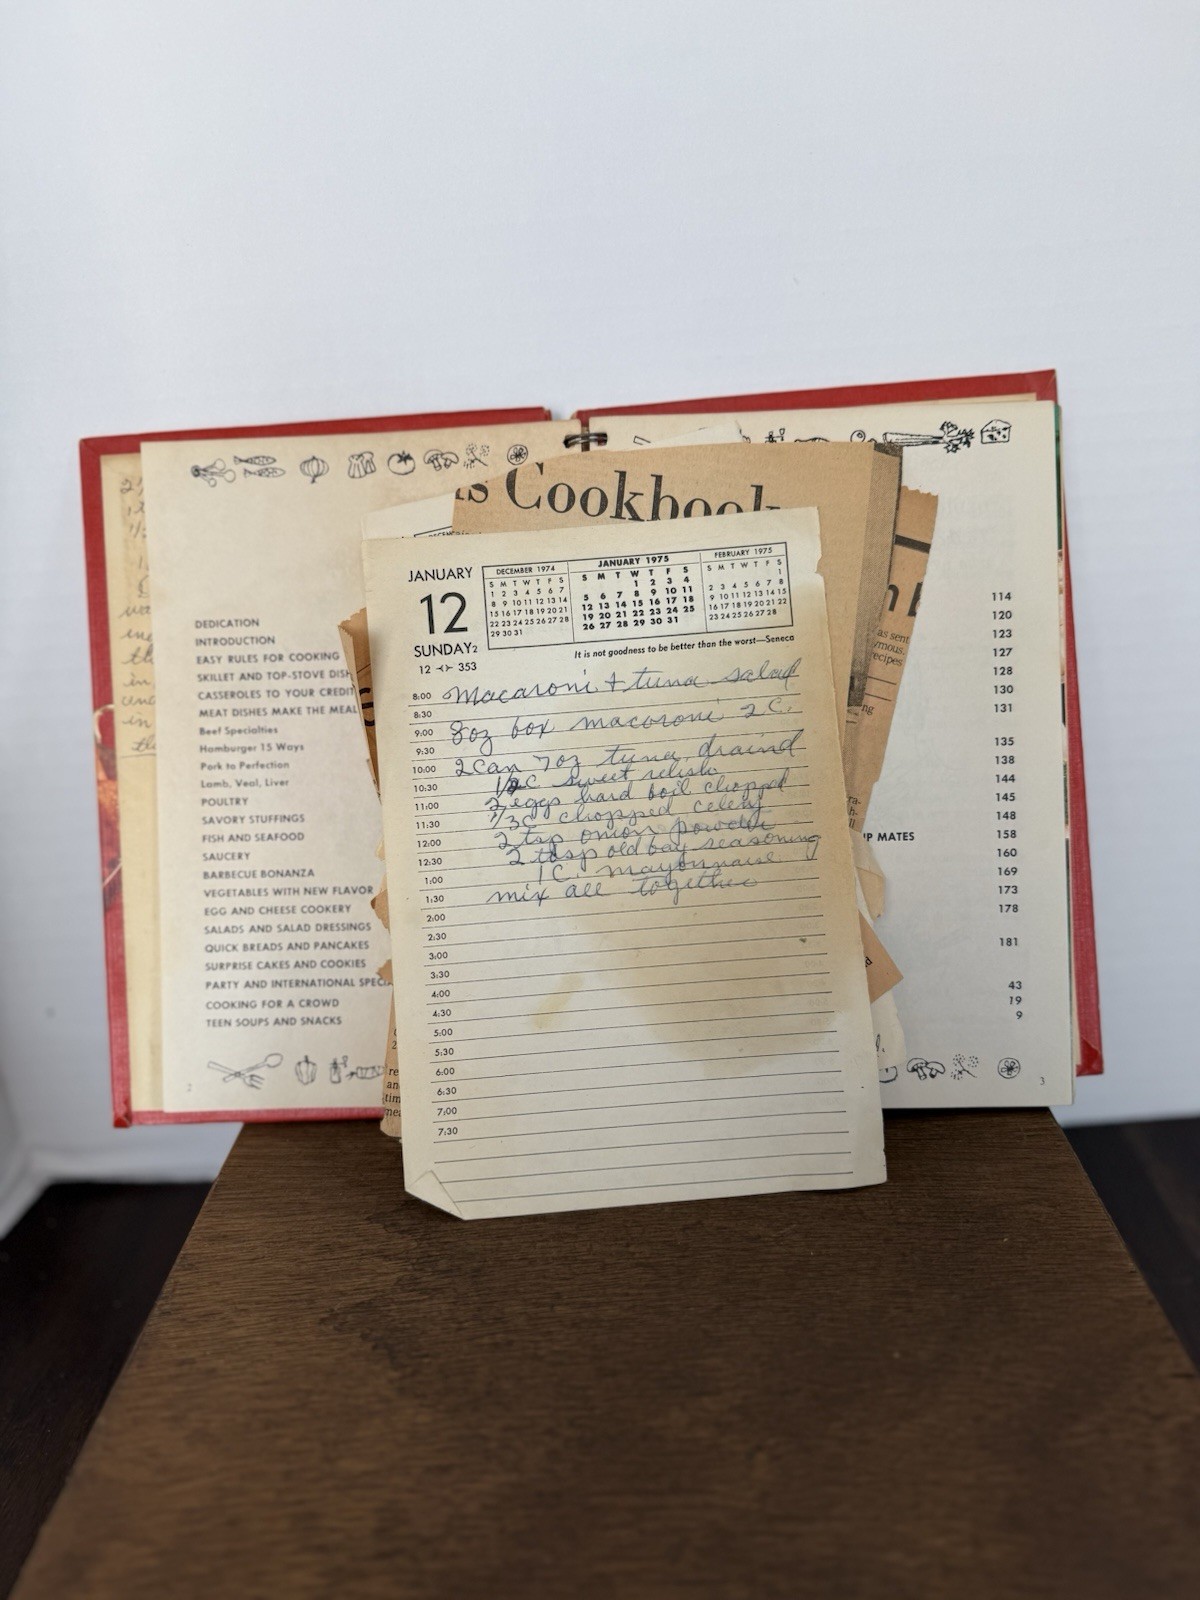 Cookbook
JANUARY
12
SUNDAY
12 353
DECEMBER 1974
S M T W T F S
1 2 3 4 5 6 7
8 9 10 11 12 13 14
15 16 17 18 19 20 21
22 23 24 25 26 27 28
29 30 31
JANUARY 1975
S M T W T F S
1 2 3 4
5 6 7 8 9 10 11
12 13 14 15 16 17 18
19 20 21 22 23 24 25
26 27 28 29 30 31
FEBRUARY 1975
S M T W T F S
1
2 3 4 5 6 7 8
9 10 11 12 13 14 15
16 17 18 19 20 21 22
23 24 25 26 27 28
It is not goodness to be better than the worst—Seneca
8:00 Macaroni + tuna salad
8:30
9:00 8oz box macaroni 2 C.
9:30
10:00 2 can 7 oz tuna, draind
10:30 C sweet relish
11:00 2 eggs hard boil chopped
11:30 1/3 C chopped celery
12:00 2 tsp onion powder
12:30 2 tbsp old bay seasoning
1:00 1 C. mayonnaise
1:30 mix all together
2:00
2:30
3:00
3:30
4:00
4:30
5:00
5:30
6:00
6:30
7:00
7:30
DEDICATION
INTRODUCTION
EASY RULES FOR COOKING
SKILLET AND TOP-STOVE DISH
CASSEROLES TO YOUR CREDIT
MEAT DISHES MAKE THE MEAL
Beef Specialties
Hamburger 15 Ways
Pork to Perfection
Lamb, Veal, Liver
POULTRY
SAVORY STUFFINGS
FISH AND SEAFOOD
SAUCERY
BARBECUE BONANZA
VEGETABLES WITH NEW FLAVOR
EGG AND CHEESE COOKERY
SALADS AND SALAD DRESSINGS
QUICK BREADS AND PANCAKES
SURPRISE CAKES AND COOKIES
PARTY AND INTERNATIONAL SPECIA
COOKING FOR A CROWD
TEEN SOUPS AND SNACKS
2
as sent
ymous.
recipes
114
120
123
127
128
130
131
135
138
144
145
148
UP MATES 158
160
169
173
178
181
43
19
9
3